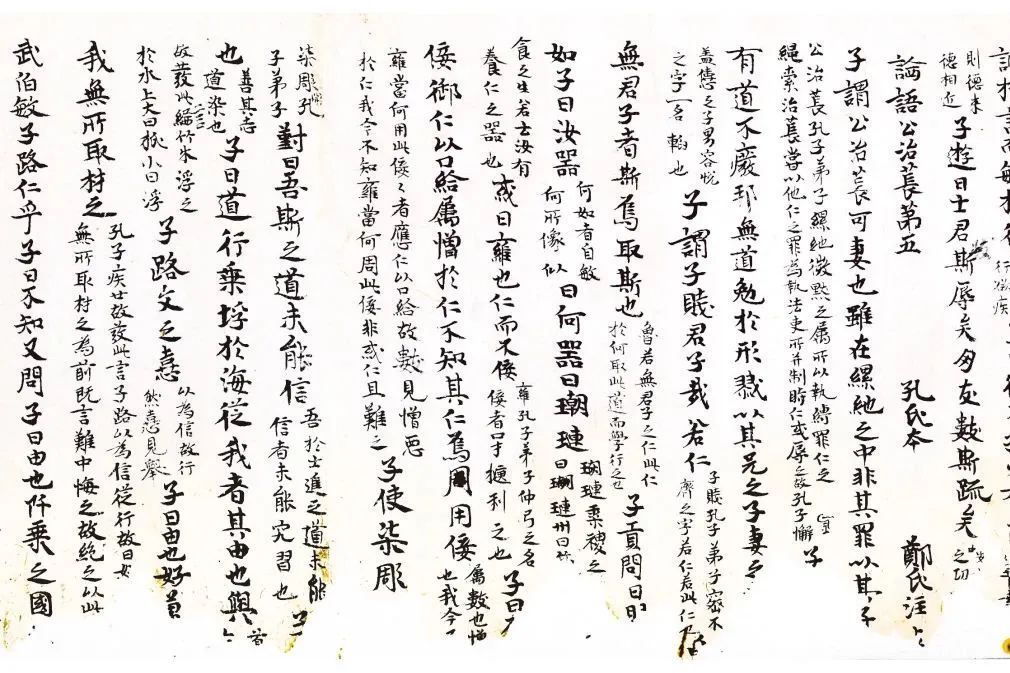 則德來德相近子遊曰士君斯辱矣匆友數斯疏矣
論語公治萇第五 孔氏本 鄭氏注
子謂公治萇可妻也雖在縲絏之中非其罪以其子
公治萇孔子弟子縲絏徽黙之属所以執縛罪仁之繩索治萇嘗以他仁之罪為執法吏所并制時仁或辱之故孔子懈子
有道不廢邦無道勉於形戮以其兄之子妻之
之子男容悅之字一名韜也子謂子賤君子哉若仁子賤孔子弟子密不齊之字若仁若此仁
無君子者斯焉取斯也魯若無君子之仁此仁於何取此道而學行之也子貢問曰
如子曰汝器何如者自敏何所像似曰何器曰瑚璉瑚璉黍稷之器曰瑚璉
食之生若士汝有養仁之器也或曰雍也仁而不佞雍孔子弟子仲弓之名佞者口才㨗利之也子曰
佞御仁以口給属憎於仁不知其仁焉用用佞属數也憎也我今
雍當何用此佞々者應仁以口給故數見憎惡於仁我今不知雍當何周此佞非或仁且難之子使柒彫
柒彫孔子弟子對曰吾斯之道未能信吾於士進之道未能信者未能究習也子
也善其志道染也子曰道行乘垺於海從我者其由也與
故發此言編竹木浮之於水上大曰栿小曰浮子路文之憙以為信故行然憙見譽子曰由也好
我無所取材之孔子疾世故發此言子路以為信從行故曰無所取材之為前既言難中悔之故絶之以此
武伯敏子路仁乎子曰不知又問子曰由也阡乘之國